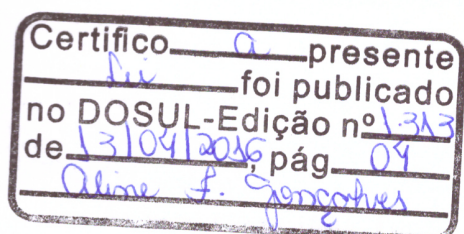 Certifico a presente
Lei foi publicado
no DOSUL-Edição nº 1.313
de 13/04/2016, pág. 04
Aline F. Gonçalves